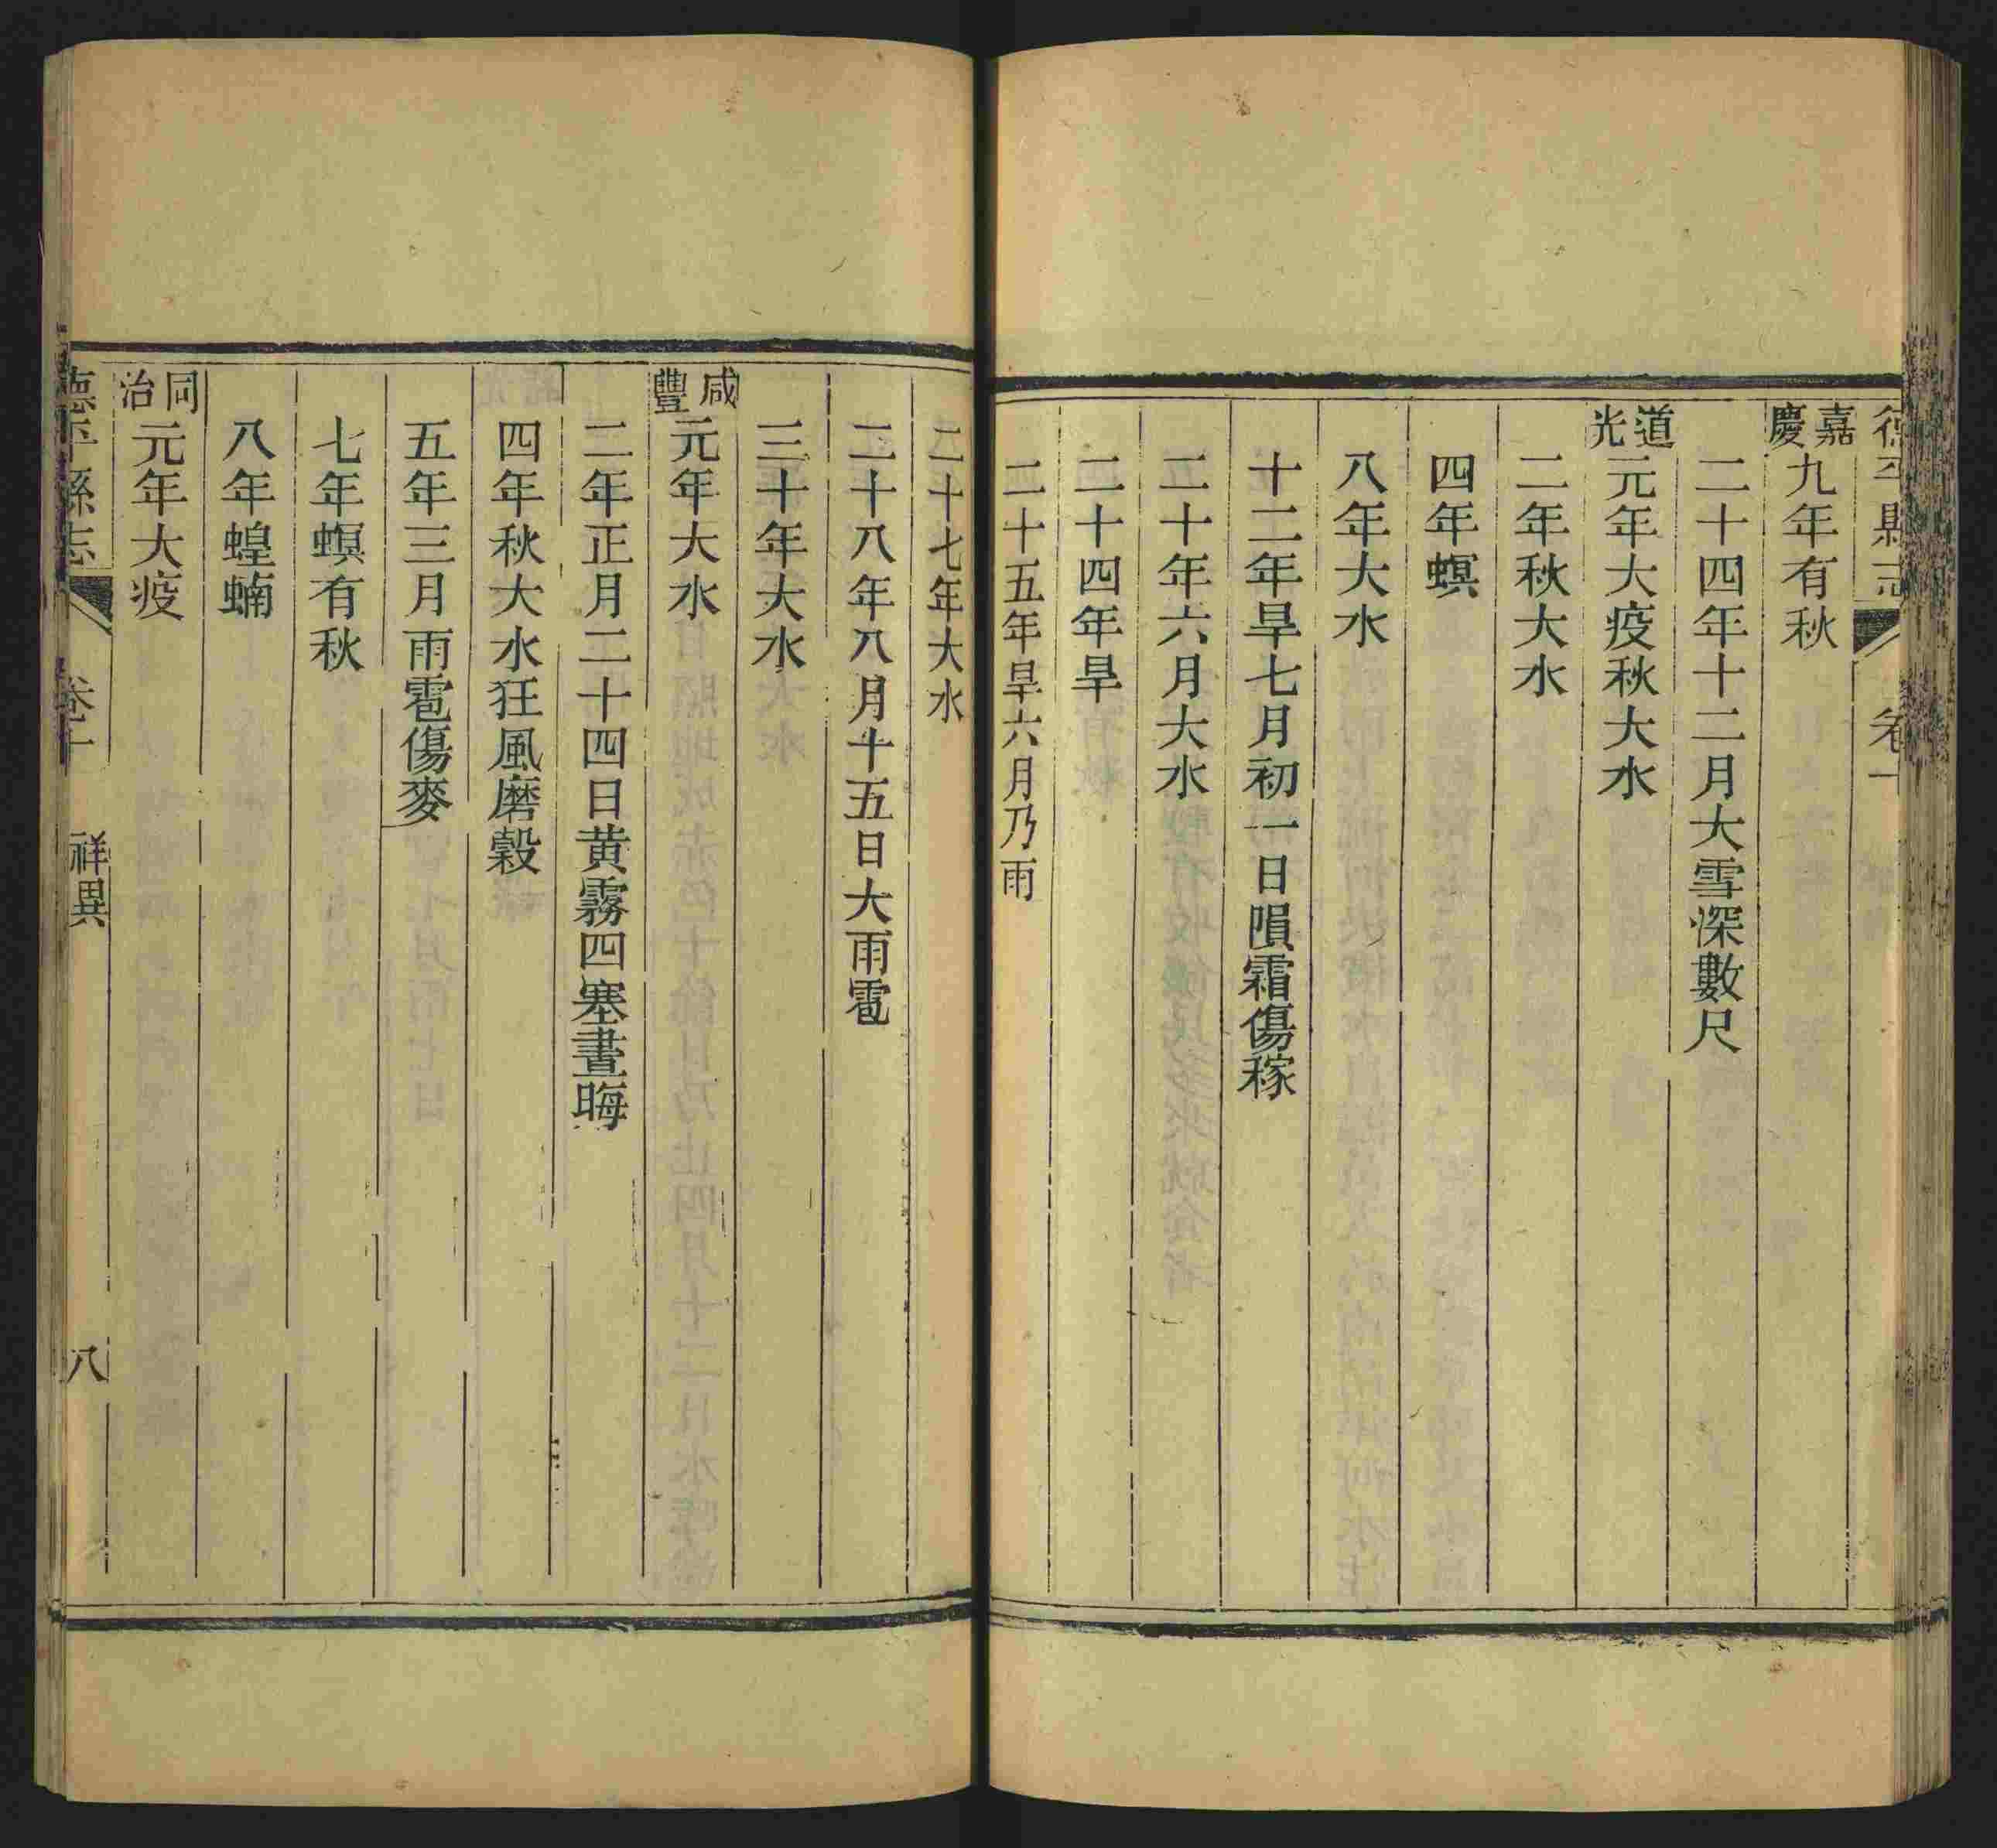 德平縣志
卷十
嘉慶九年有秋
二十四年十二月大雪深數尺
道光元年大疫秋大水
二年秋大水
四年螟
八年大水
十二年旱七月初一日隕霜傷稼
二十年六月大水
二十四年旱
二十五年旱六月乃雨
二十七年大水
二十八年八月十五日大雨雹
三十年大水
咸豐元年大水
二年正月二十四日黄霧四塞晝晦
四年秋大水狂風磨穀
五年三月雨雹傷麥
七年螟有秋
八年蝗蝻
同治元年大疫
德平縣志
卷十
祥異
八